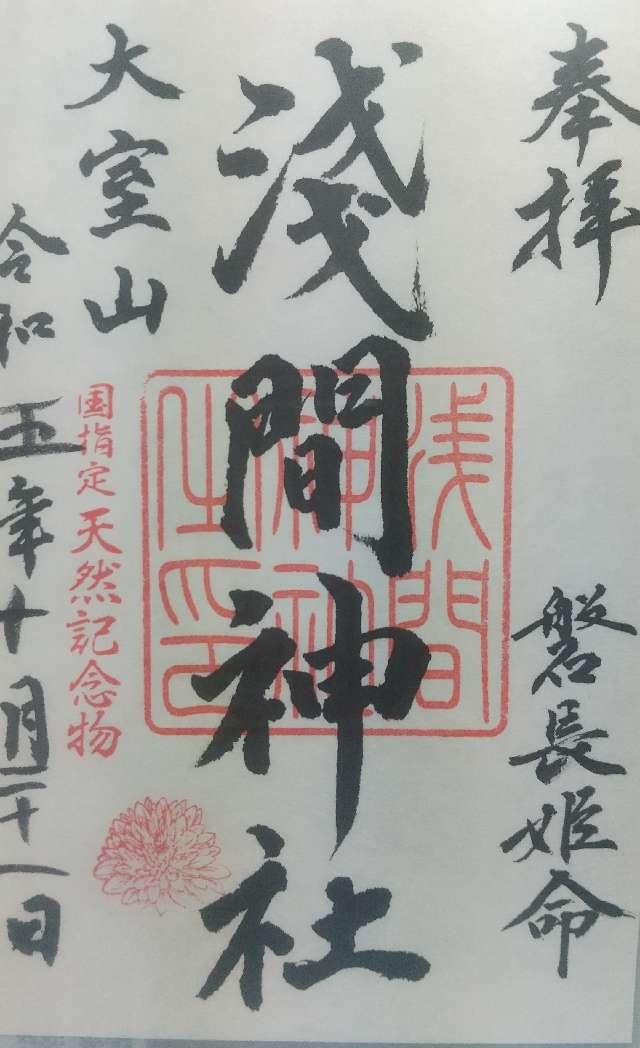 奉拝
磐長姫命
浅間神社
浅間
神社
之印
大室山
国指定天然記念物
令和五年十月二十一日